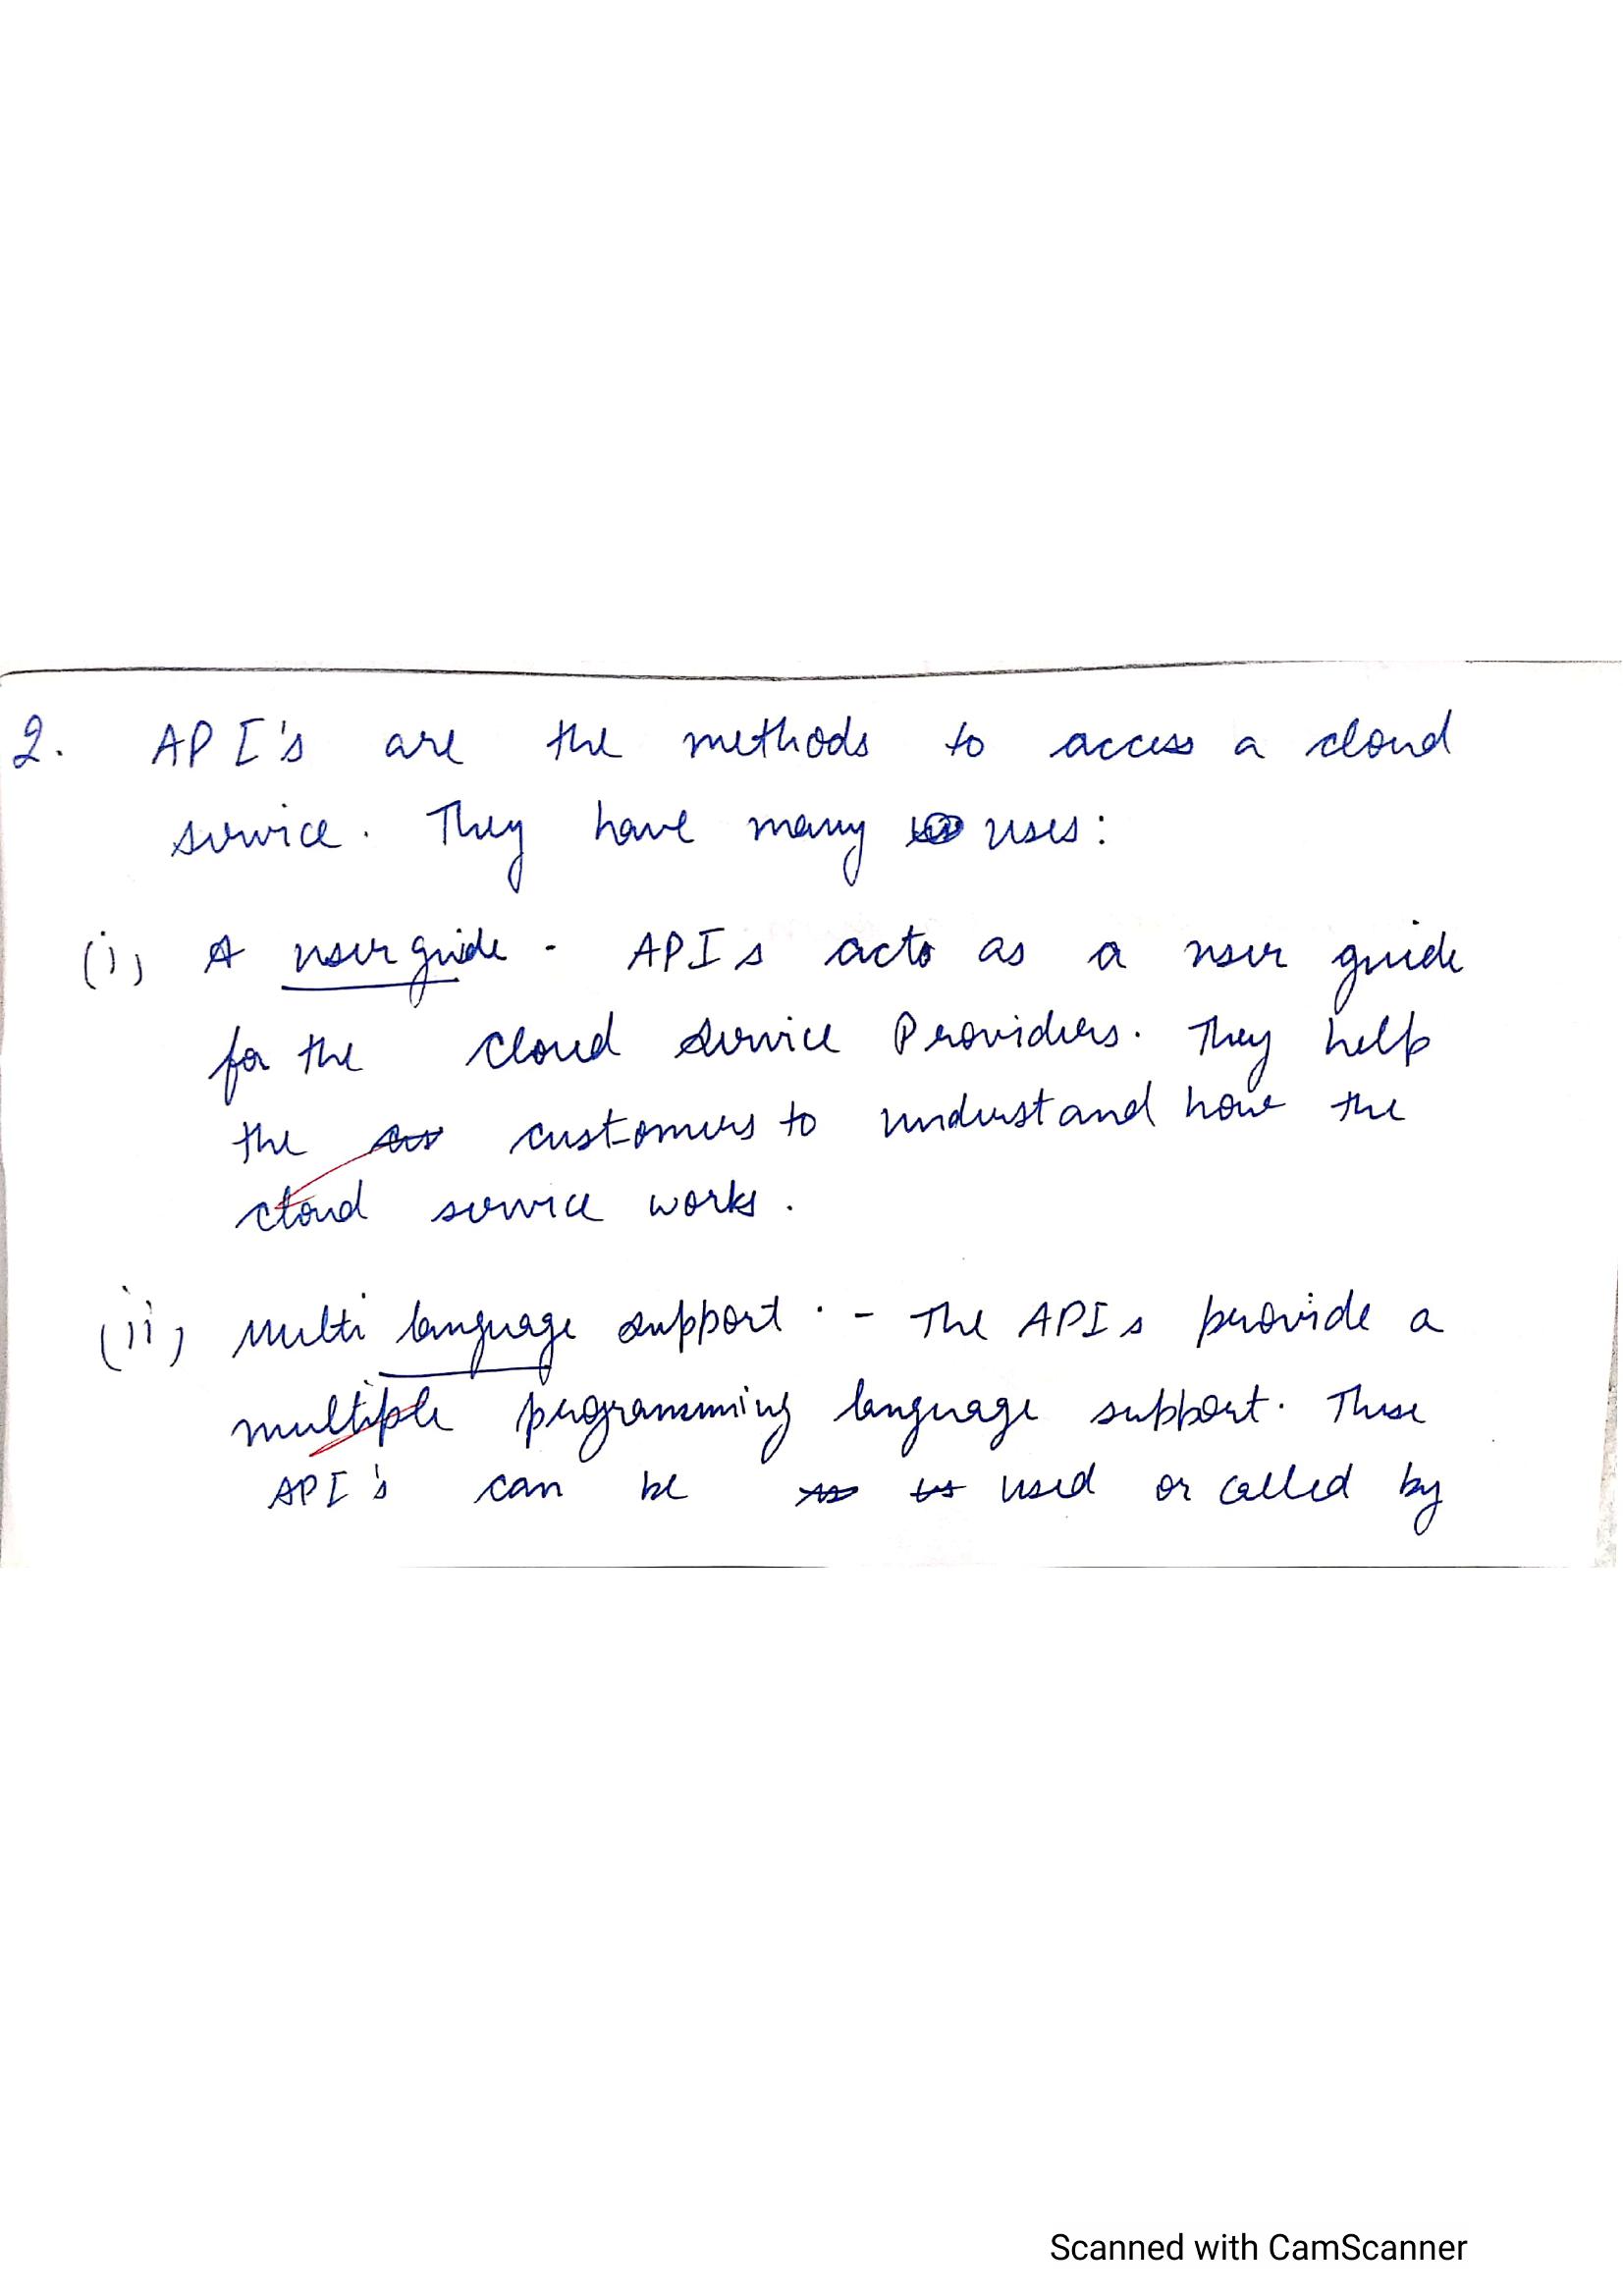 2. API's are the methods to access a cloud
service. They have many uses:
(i) A user guide - APIs acts as a user guide
for the cloud service Providers. They help
the customers to understand how the
cloud service works.
(ii) Multi language support. - The APIs provide a
multiple programming language support. These
API's can be used or called by
Scanned with CamScanner